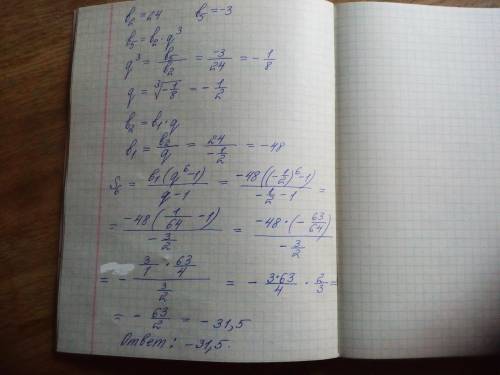 b₂ = 24 b₅ = -3
b₅ = b₂ · q³
q³ = b₅/b₂ = -3/24 = -1/8
q = ∛(-1/8) = -1/2
b₂ = b₁ · q
b₁ = b₂/q = 24/(-1/2) = -48
S₆ = b₁(q⁶-1)/(q-1) = -48((-1/2)⁶-1)/(-1/2-1) =
= -48(1/64 - 1)/(-3/2) = -48·(-63/64)/(-3/2)
= - (3/1 · 63/4)/(3/2) = - 3·63/4 · 2/3 =
= - 63/2 = -31,5
Ответ: -31,5.